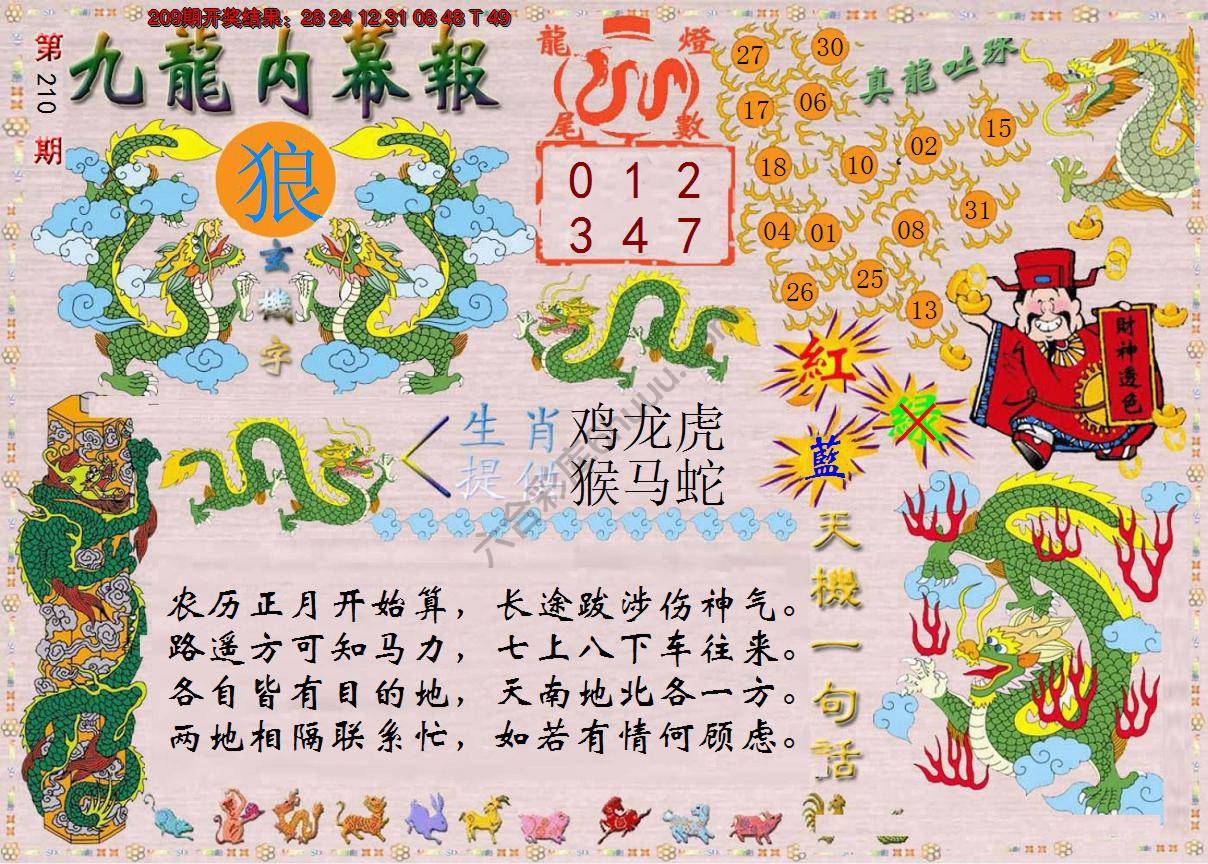 209期开奖结果：28 24 12 31 08 48 T 49
第210期
九龍内幕報
狼
玄機字
龍 燈
尾 數
0 1 2
3 4 7
真龍吐珠
27 30
17 06
18 10 02 15
04 01 08 31
26 25 13
財神透色
紅
绿
藍
生肖 鸡龙虎
提供 猴马蛇
天機一句話
农历正月开始算，长途跋涉伤神气。
路遥方可知马力，七上八下车往来。
各自皆有目的地，天南地北各一方。
两地相隔联系忙，如若有情何顾虑。